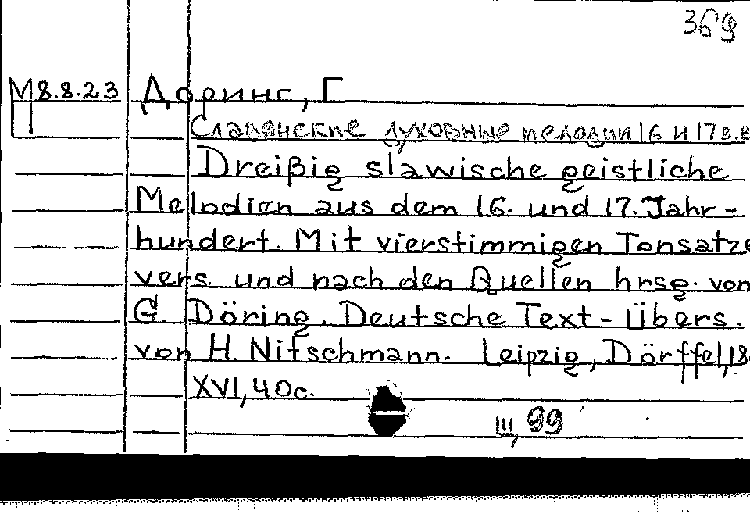 369
М 8.8.23 Доринг, Г
Славянские духовные мелодии 16 и 17 в.в
Dreißig slawische geistliche
Melodien aus dem 16. und 17. Jahr-
hundert. Mit vierstimmigen Tonsatze
vers. und nach den Quellen hrsg. von
G. Döring. Deutsche Text-Übers.
von H. Nitschmann. Leipzig, Dörffel, 18
XVI, 40 с.
III, 99